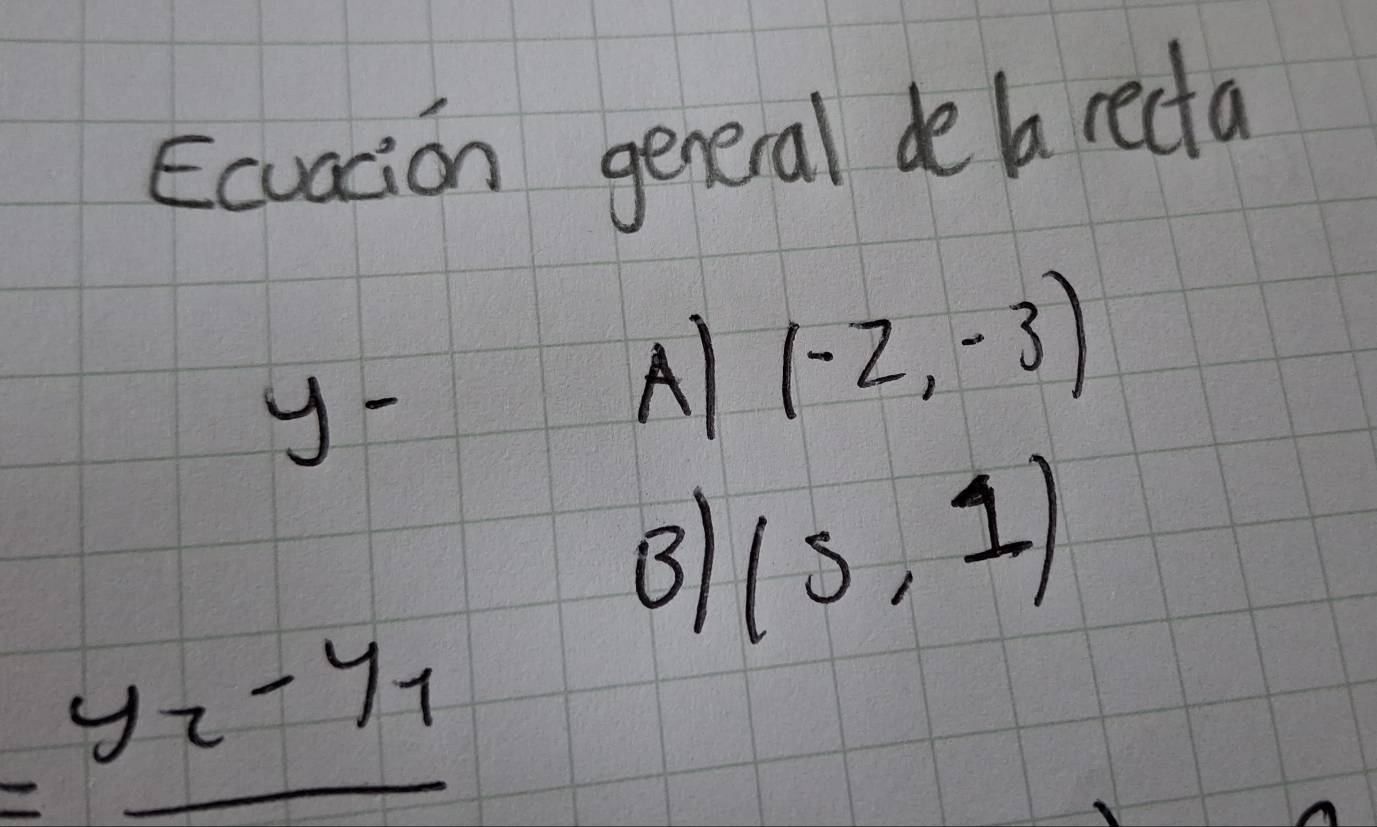 Ecuación general de la recta
y - A) (-2, -3)
B) (5, 1)
= y₂ - y₁